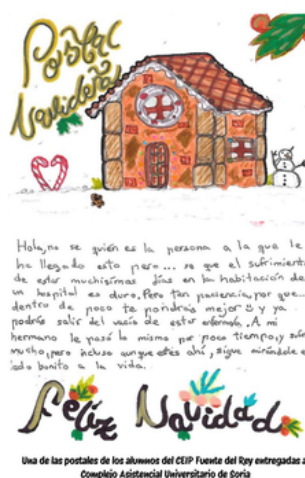 Postal
Navideña
Hola, no se quién es la persona a la que le
ha llegado esto pero... se que el sufrimiento
de estar muchisimas días en la habitación de
un hospital es duro. Pero ten paciencia, por que
dentro de poco te pondrás mejor y ya
podrás salir del vacío de estar enfermo. A mi
hermano le pasó lo mismo por poco tiempo, y sufrí
mucho, pero incluso aunque estés ahí, sigue mirándole el
lado bonito a la vida.
Feliz Navidad
Una de las postales de los alumnos del CEIP Fuente del Rey entregadas a
Complejo Asistencial Universitario de Soria